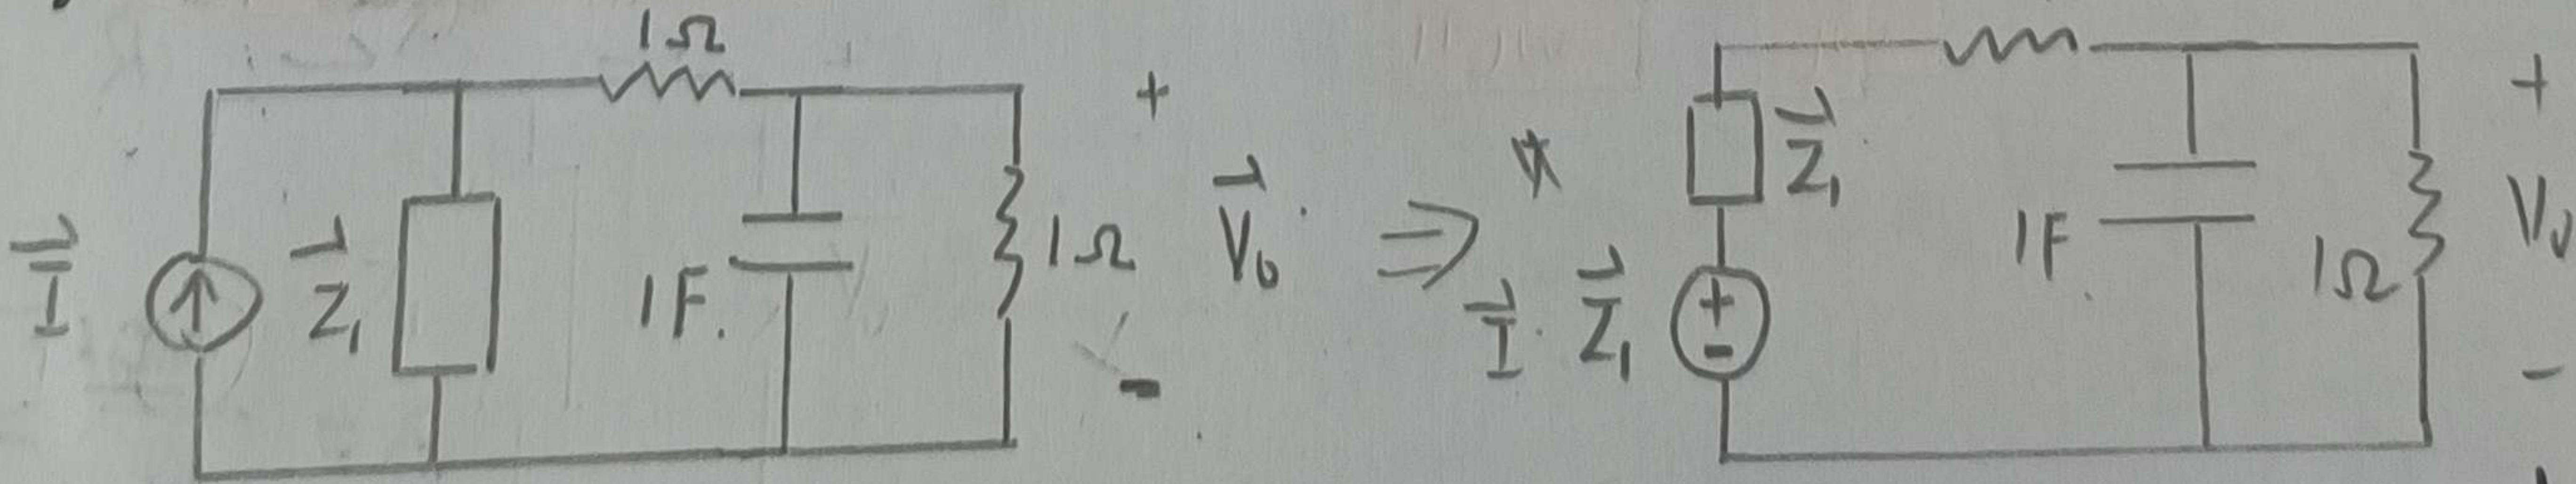 1Ω
+
I⃗
Z⃗₁
1F.
1Ω
V⃗₀
-
⇒
*
Z⃗₁
I⃗ · Z⃗₁
+
-
1F
1Ω
+
V₀
-